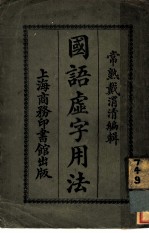 常熟戴渭清編輯
國語虛字用法
上海商務印書館出版
749